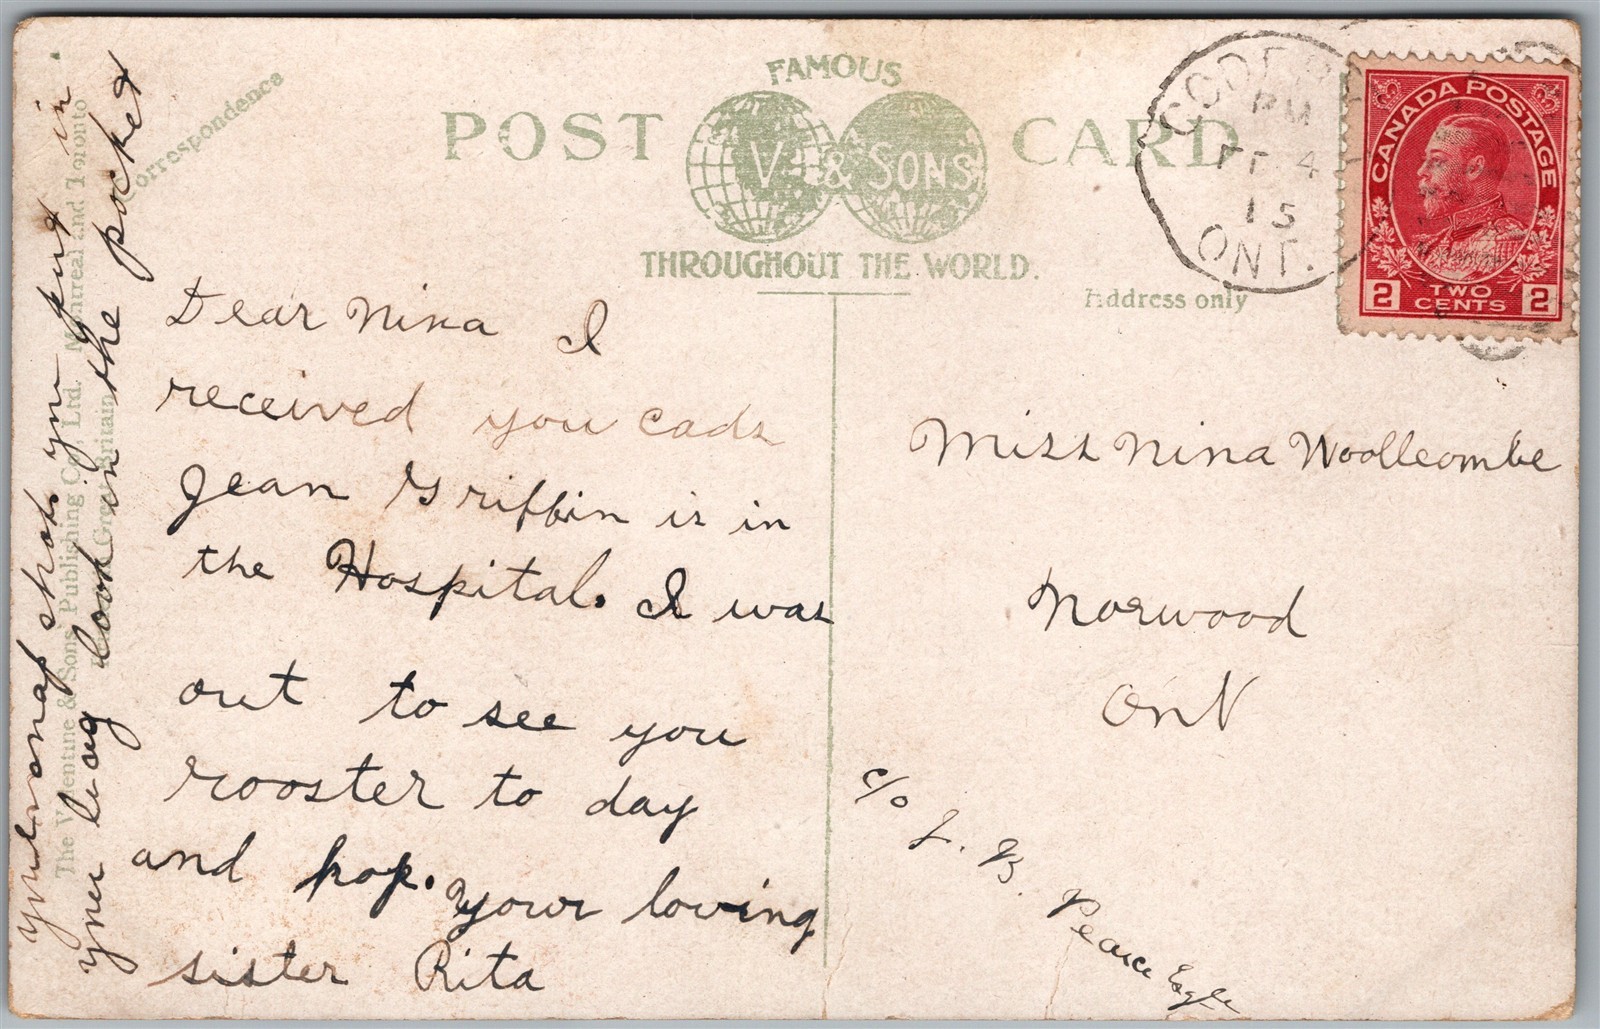 FAMOUS
POST CARD
V. & SONS
THROUGHOUT THE WORLD.
Correspondence
Address only
The Valentine & Sons Publishing Co., Ltd. Montreal and Toronto
Great Britain
PM
FE 4
15
ONT.
CANADA POSTAGE
2 TWO CENTS 2
Dear Nina I
received you cads
Jean Griffin is in
the Hospital. I was
out to see you
rooster to day
and pop. your loving
sister Rita
snap shots you put in
look in the pocket
Miss Nina Woollcombe
Norwood
Ont
c/o J. B. Pearce Esq